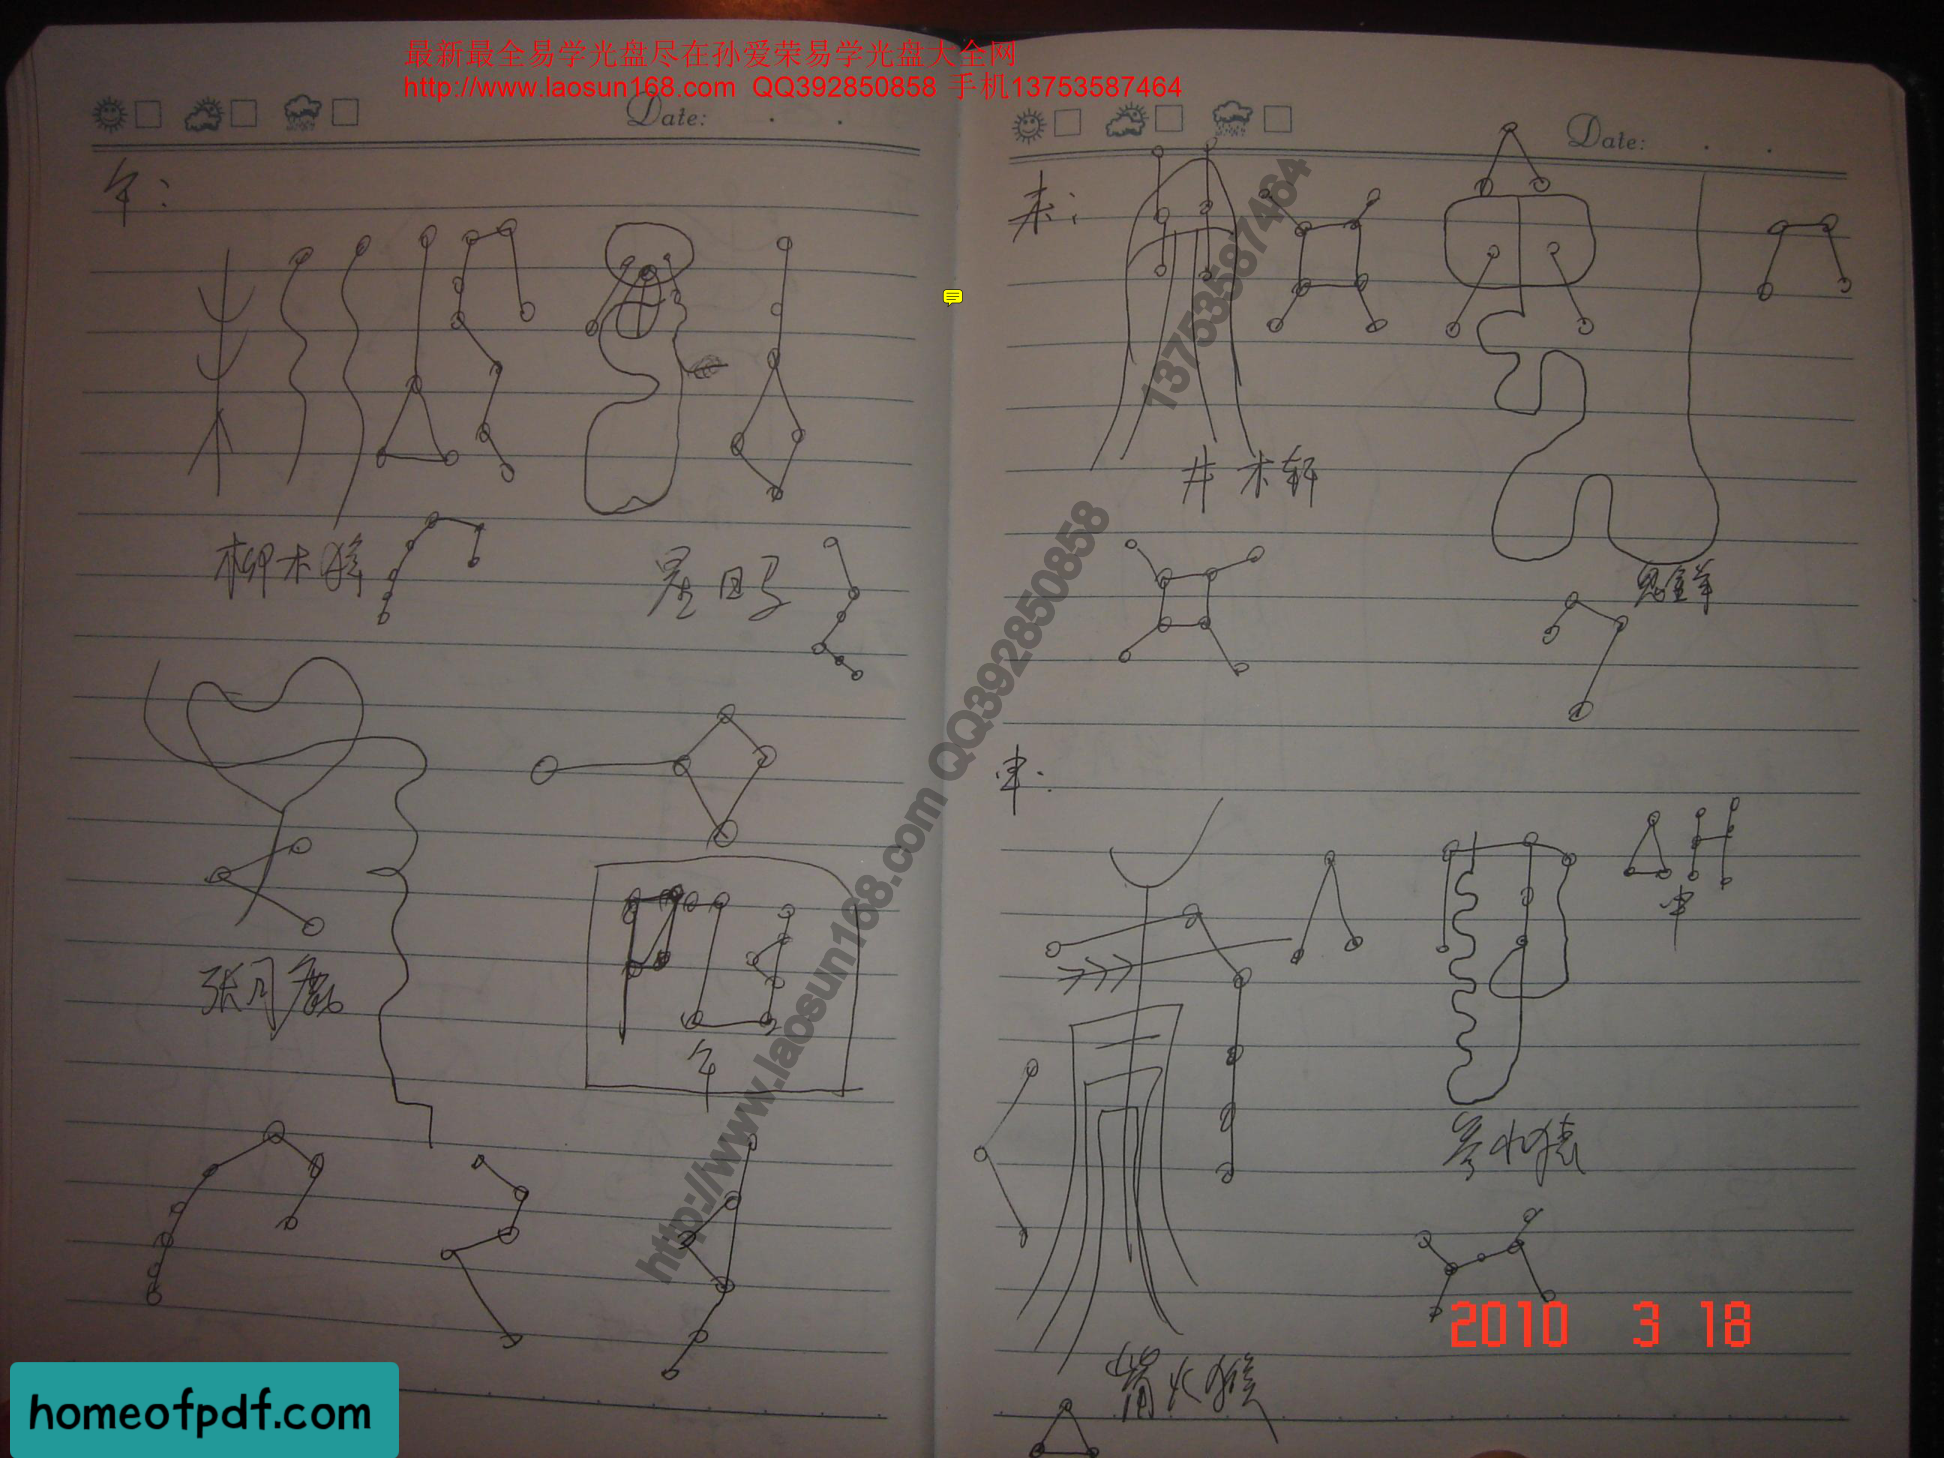 最新最全易学光盘尽在孙爱荣易学光盘大全网
http://www.laosun168.com QQ392850858 手机13753587464
Date:
午：
柳木獐
星日马
张月鹿
午
Date:
未：
井木轩
鬼金羊
申：
申
参水猿
觜火猴
http://www.laosun168.com QQ392850858 13753587464
2010 3 18
homeofpdf.com